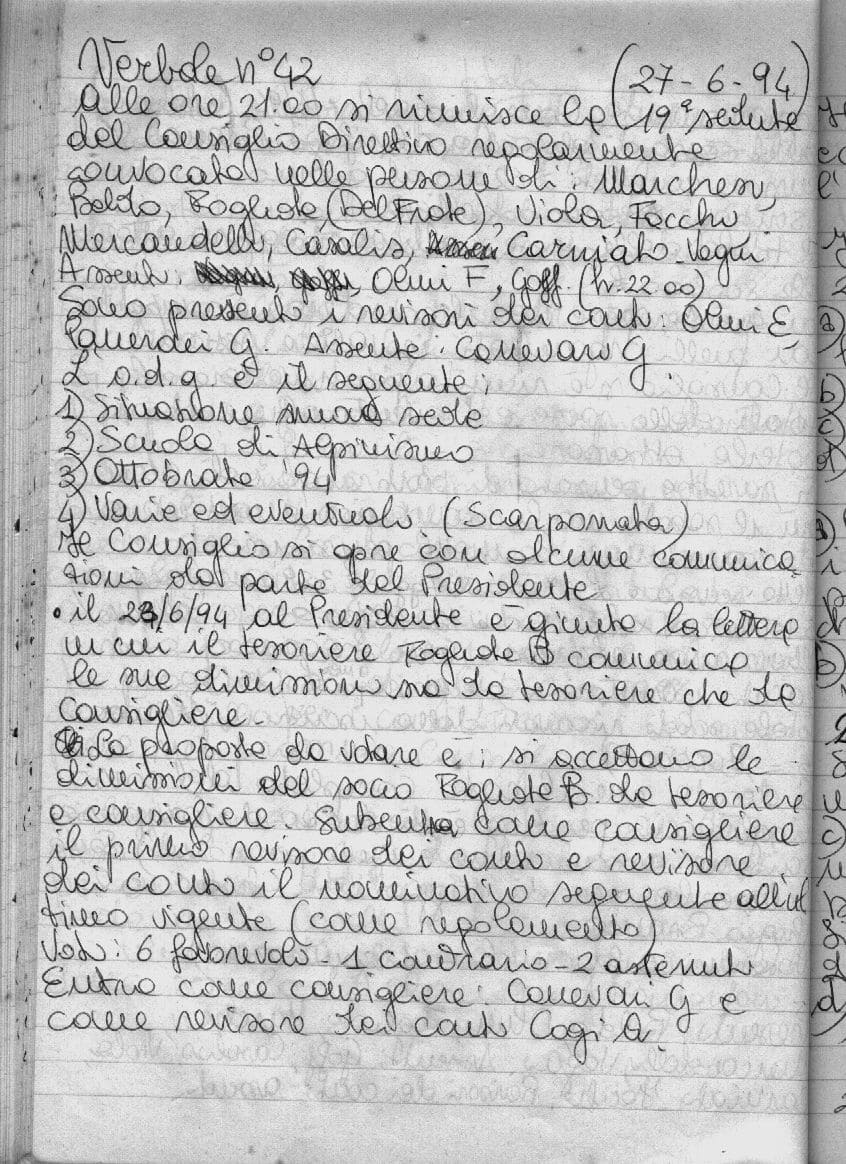 Verbale n° 42 (27-6-94)
Alle ore 21.00 si riunisce la 19ª seduta
del Consiglio Direttivo regolarmente
convocato nelle persone di: Marchesi,
Bolito, Rogliate (Dal Frate), Viola, Facchi
Mercandelli, Casalis, Carniato - Vegni
Assenti. Olmi F, Goff. (h. 22.00)
Sono presenti i revisori dei conti: Olmi E,
G. Assente: Canevari G.
L'o.d.g è il seguente:
1) Situazione nuova sede
2) Scuola di Alpinismo
3) Ottobrata '94
4) Varie ed eventuali (Scarponata)
Il Consiglio si apre con alcune comunica
zioni da parte del Presidente
• il 23/6/94 al Presidente è giunta la lettera
in cui il tesoriere Rogliate B comunica
le sue dimissioni sia da tesoriere che da
Consigliere.
La proposta da votare è: si accettano le
dimissioni del socio Rogliate B. da tesoriere
e consigliere. Subentra come consigliere
il primo revisore dei conti e revisore
dei conti il nominativo seguente all'ul
timo vigente (come regolamento)
Voti: 6 favorevoli - 1 contrario - 2 astenuti
Entra come consigliere: Canevari G e
come revisore dei conti Cogi A.